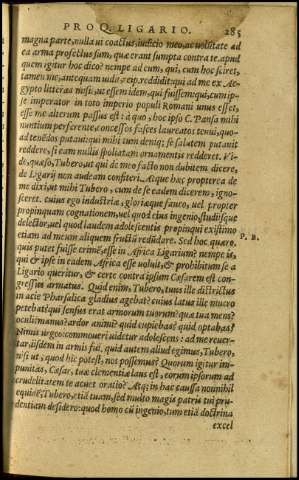 PRO Q. LIGARIO. 285
magna parte, nulla ui coactus, iudicio meo, ac uolūtate ad
ea arma profectus sum, quæ erant sumpta contra te. apud
quem igitur hoc dico? nempe ad eum, qui, cum hoc sciret,
tamen me, antequam uidit, reip. reddidit: qui ad me ex Ae-
gypto litteras misit, ut essem idem, qui fuissem: qui, cum ip-
se imperator in toto imperio populi Romani unus esset,
esse me alterum passus est: à quo, hoc ipso C. Pansa mihi
nuntium perferente, concessos fasces laureatos tenui, quo-
ad tenēdos putaui: qui mihi tum deniq; se salutem putauit
reddere, si eam nullis spoliatam ornamentis redderet. Vi-
de, quæso, Tubero, ut qui de meo facto non dubitem dicere,
de Ligarij non audeam confiteri. Atque hæc propterea de
me dixi, ut mihi Tubero, cum de se eadem dicerem, igno-
sceret. cuius ego industriæ, gloriæque faueo, uel propter
propinquam cognationem, uel quod eius ingenio, studijsque
delector, uel quod laudem adolescentis propinqui existimo
etiam ad meum aliquem fructū redūdare. Sed hoc quæro,
P. B.
quis putet fuisse crimē, esse in Africa Ligarium? nempe is,
qui & ipse in eadem Africa esse uoluit, & prohibitum se a
Ligario queritur, & certe contra ipsum Cæsarem est con-
gressus armatus. Quid enim, Tubero, tuus ille districtus
in acie Pharsalica gladius agebat? cuius latus ille mucro
petebat? qui sensus erat armorum tuorum? quæ tua mens?
oculi? manus? ardor animi? quid cupiebas? quid optabas?
Nimis urgeo: commoueri uidetur adolescens: ad me reuer-
tar. iisdem in armis fui. quid autem aliud egimus, Tubero,
nisi ut, quod hic potest, nos possemus? Quorum igitur im-
punitas, Cæsar, tuæ clementiæ laus est, eorum ipsorum ad
crudelitatem te acuet oratio? Atq; in hac caussa nonnihil
equidē, Tubero, etiā tuam, sed multo magis patris tui pru-
dentiam desidero: quod homo cū ingenio, tum etiā doctrina
excel